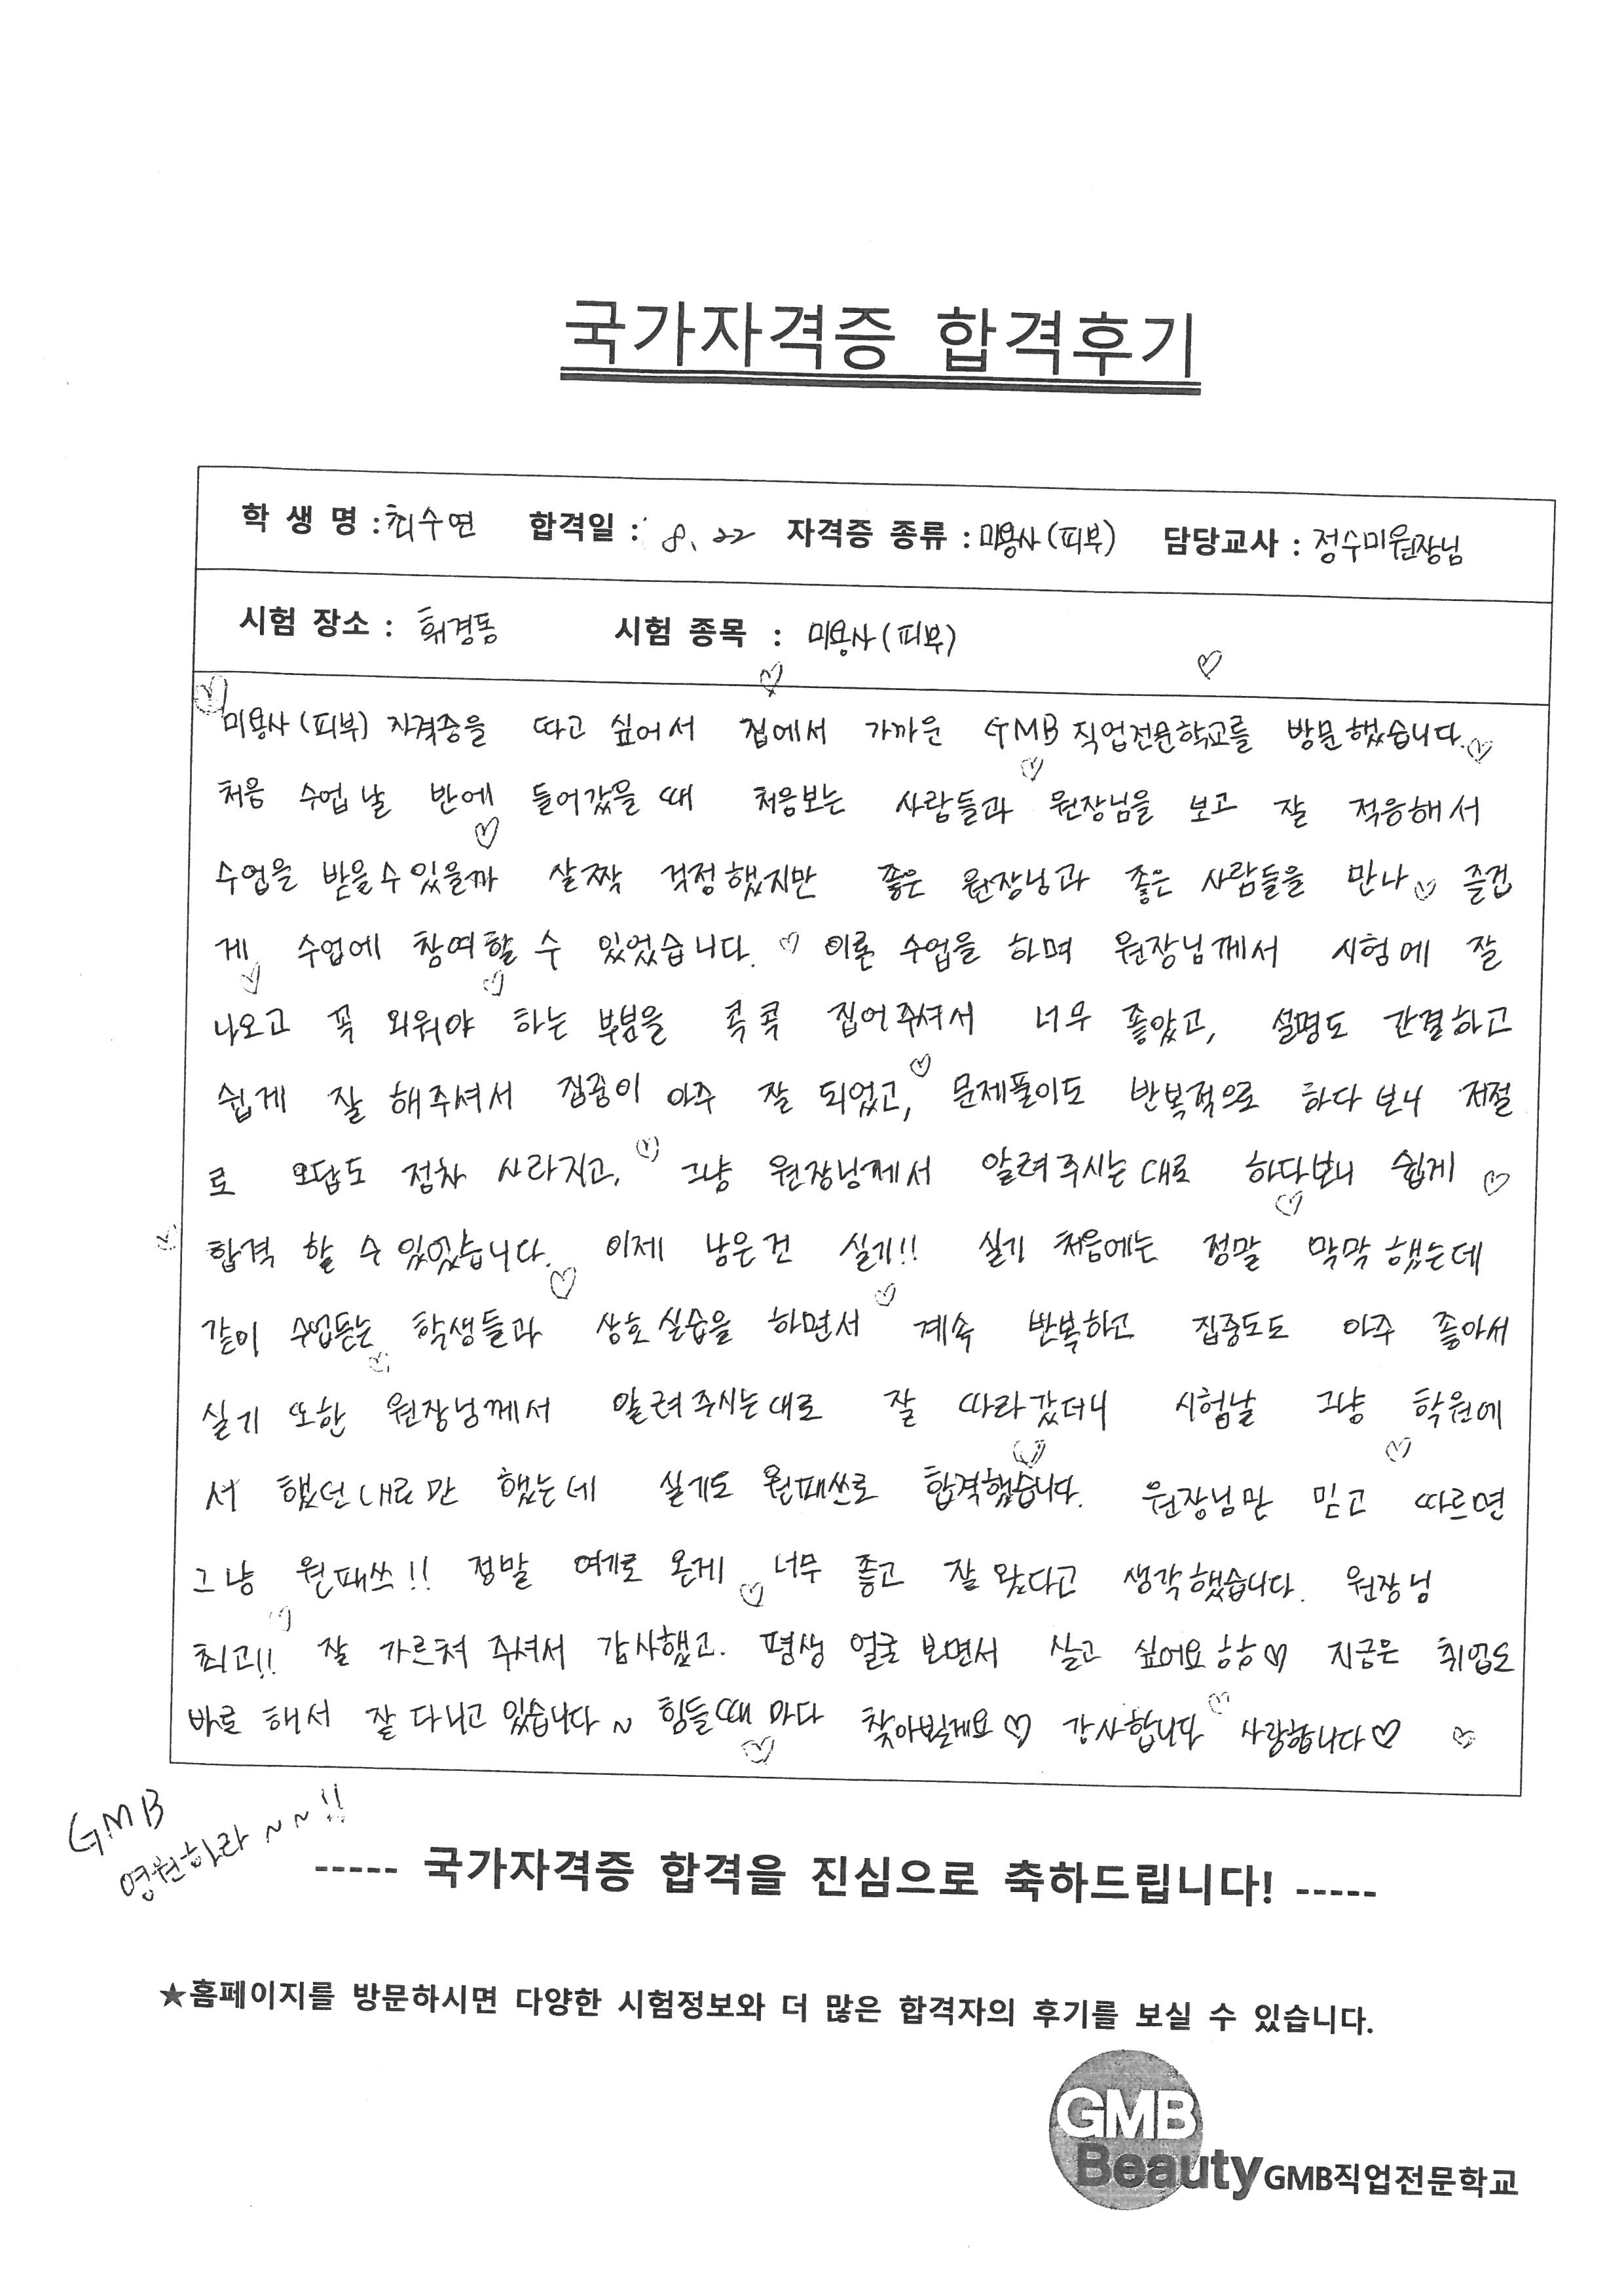 국가자격증 합격후기
학 생 명 : 최수연 합격일 : 8. 22 자격증 종류 : 미용사(피부) 담당교사 : 정수미원장님
시험 장소 : 휘경동 시험 종목 : 미용사(피부)
미용사(피부) 자격증을 따고 싶어서 집에서 가까운 GMB 직업전문학교를 방문했습니다.
처음 수업날 반에 들어갔을 때 처음보는 사람들과 원장님을 보고 잘 적응해서
수업을 받을수있을까 살짝 걱정했지만 좋은 원장님과 좋은 사람들을 만나 즐겁
게 수업에 참여할 수 있었습니다. 이론 수업을 하며 원장님께서 시험에 잘
나오고 꼭 외워야 하는 부분을 콕콕 집어주셔서 너무 좋았고, 설명도 간결하고
쉽게 잘 해주셔서 집중이 아주 잘 되었고, 문제풀이도 반복적으로 하다보니 저절
로 오답도 점차 사라지고, 그냥 원장님께서 알려주시는대로 하다보니 쉽게
합격 할 수 있었습니다. 이제 남은건 실기!! 실기 처음에는 정말 막막했는데
같이 수업듣는 학생들과 상호실습을 하면서 계속 반복하고 집중도도 아주 좋아서
실기 또한 원장님께서 알려주시는대로 잘 따라갔더니 시험날 그냥 학원에
서 했던대로만 했는데 실기도 원패쓰로 합격했습니다. 원장님만 믿고 따르면
그냥 원패쓰!! 정말 여기로 온게 너무 좋고 잘 왔다고 생각했습니다. 원장님
최고!! 잘 가르쳐 주셔서 감사했고. 평생 얼굴 보면서 살고 싶어요ㅎㅎ♡ 지금은 취업도
바로 해서 잘 다니고 있습니다~ 힘들때 마다 찾아뵐게요♡ 감사합니다 사랑합니다♡
GMB
영원하라~~!!
----- 국가자격증 합격을 진심으로 축하드립니다! -----
★홈페이지를 방문하시면 다양한 시험정보와 더 많은 합격자의 후기를 보실 수 있습니다.
GMB
Beauty GMB직업전문학교